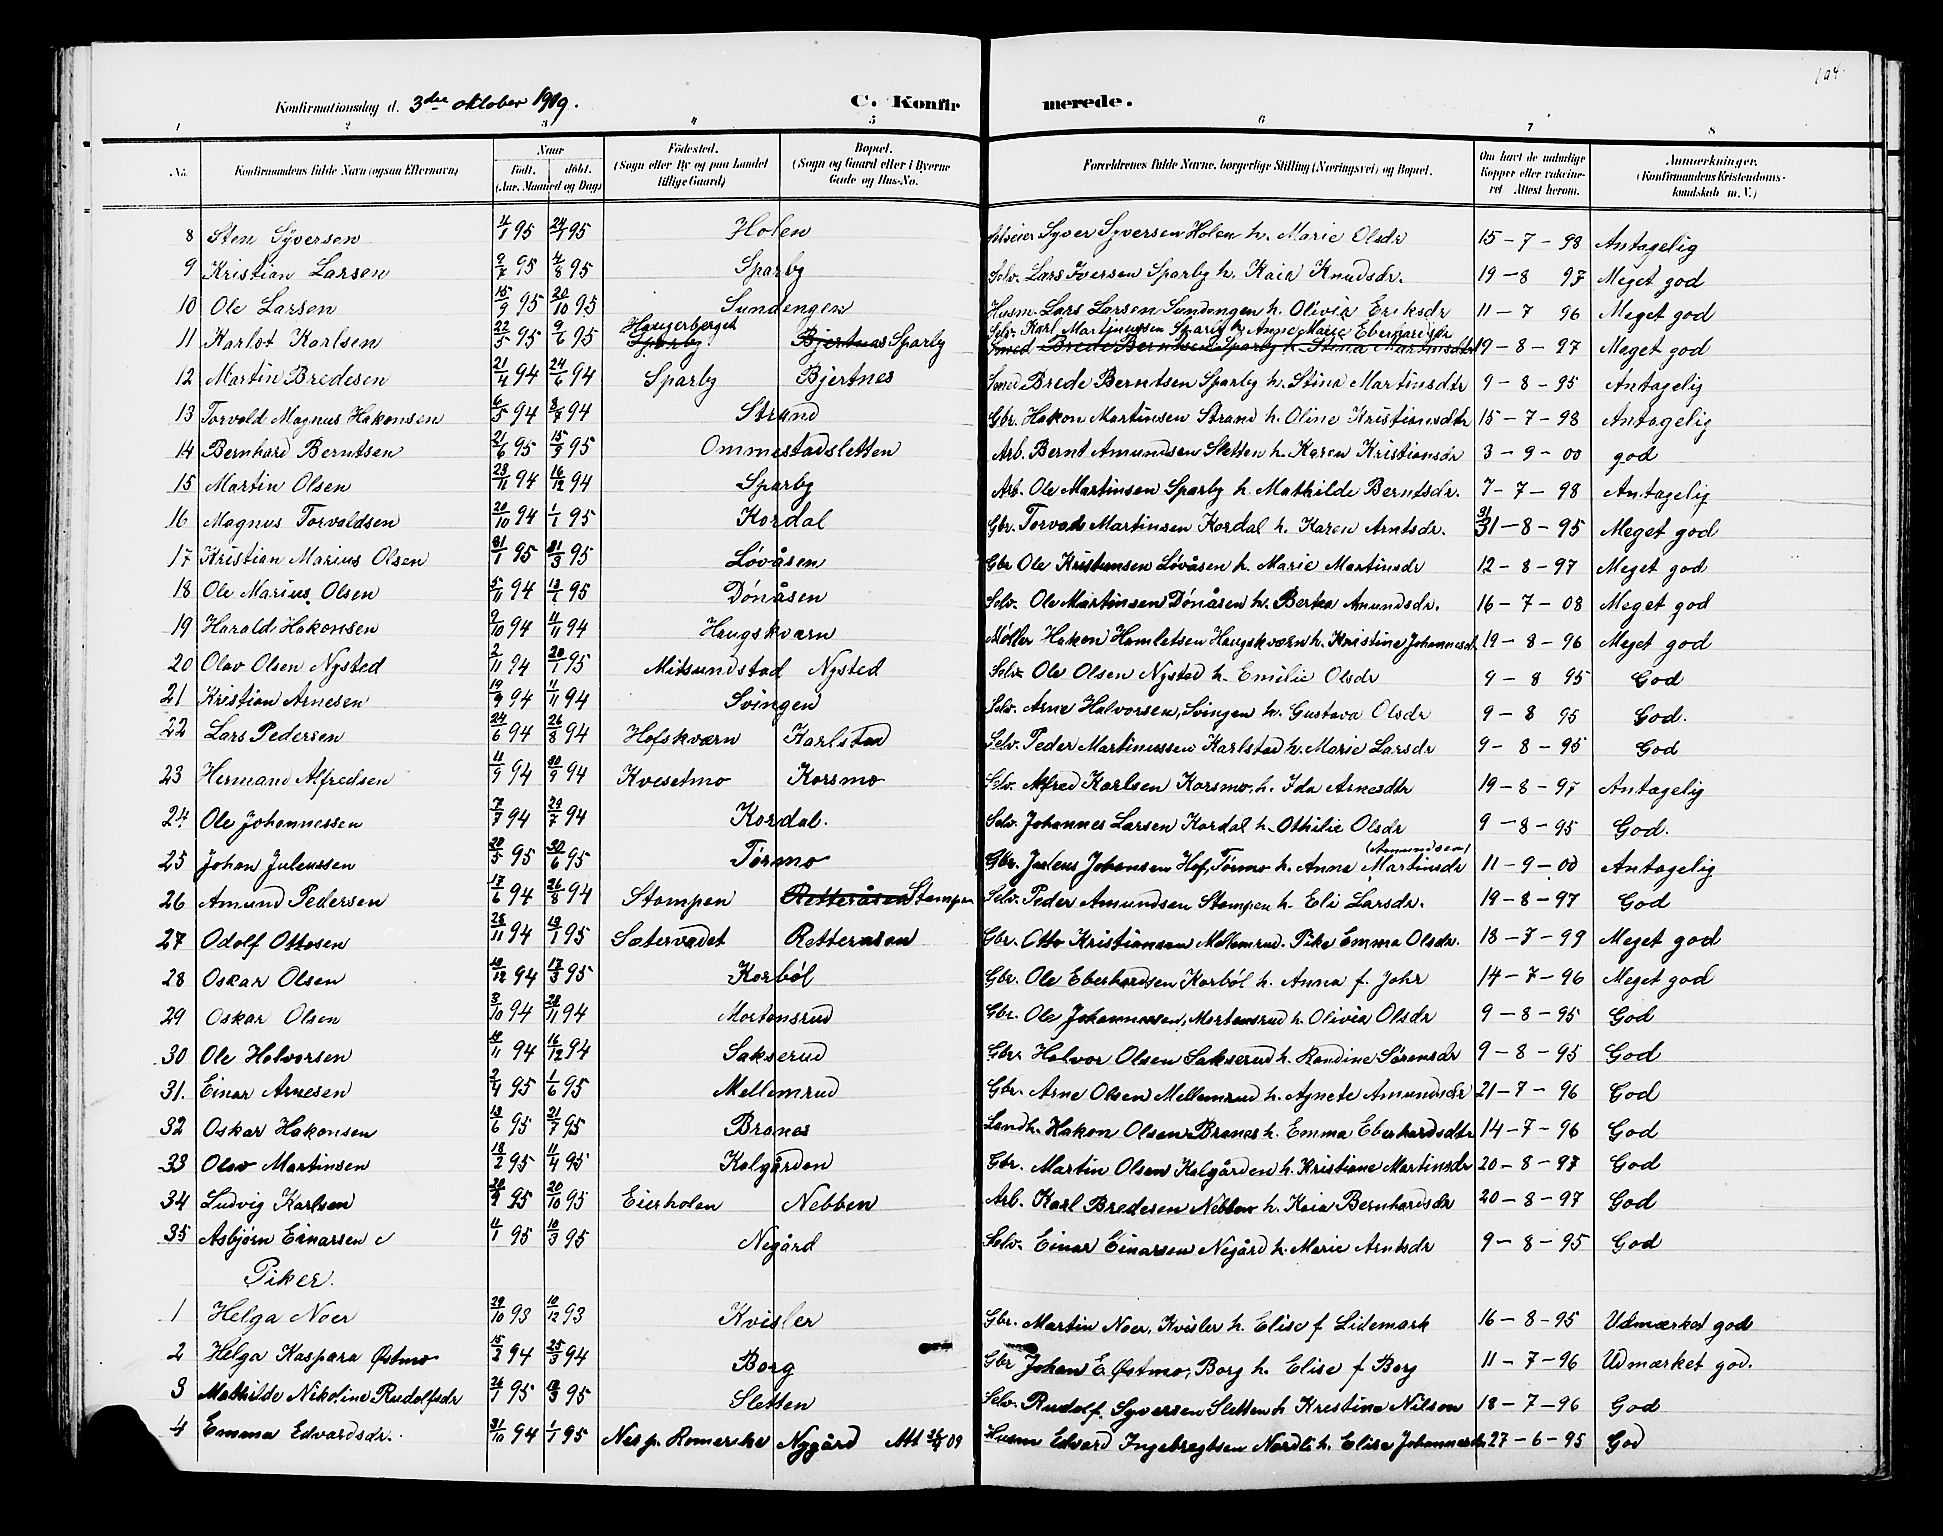 104.
Konfirmationsdag d. 3die oktober 1909. C. Konfirmerede.
1 2 3 4 5 6 7 8
No. Konfirmandens fulde Navn (ogsaa Efternavn) Naar Født. døbt. (Aar, Maaned og Dag) Fødested. (Sogn eller By og paa Landet tillige Gaard) Bopæl. (Sogn og Gaard eller i Byerne Gade og Hus-No. Forældrenes fulde Navne, borgerlige Stilling (Næringsvei) og Bopæl. Om havt de naturlige Kopper eller vakcineret Attest herom. Anmærkninger. (Konfirmandens Kristendomskundskab m. V.)
8 Sten Syversen 4/1 95 24/1 95 Holen Selveier Syver Syversen Holen h. Marie Olsdr 15-7-98 Antagelig
9 Kristian Larsen 9/7 95 4/8 95 Sparby Selv. Lars Iversen Sparby h. Kaia Knudsdr. 19-8 97 Meget god
10 Ole Larsen 15/9 95 20/10 95 Sundengen Husm. Lars Larsen Sundengen h. Olivia Eriksdr 11-7 96 Meget god
11 Karlot Karlsen 22/5 95 9/6 95 Haugerberget Sparby Bjertnæs Sparby Selv. Karl Martinussen Sparby h. Anne Marie Ebermarsdr
Smed Brede Berntsen Sparby h. Stina Martinsdtr 19-8-97 Meget god
12 Martin Bredesen 21/4 94 24/6 94 Sparby Bjertnes Smed Brede Berntsen Sparby h. Stina Martinsdtr 9-8-95 Antagelig
13 Torvald Magnus Hakonsen 6/5 94 8/7 94 Strand Gbr. Hakon Martinsen Strand h. Oline Kristiansdtr 15-7-98 Antagelig
14 Bernhard Berntsen 21/6 95 15/9 95 Ommestadsletten Arb. Bernt Amundsen Sletten h. Karen Kristiansdr 3-9-00 god
15 Martin Olsen 28/11 94 16/12 94 Sparby Arb. Ole Martinsen Sparby h. Mathilde Berntsdr. 7-7-98 Antagelig
16 Magnus Torvaldsen 20/10 94 1/1 95 Kordal Gbr. Torvald Martinsen Kordal h. Karen Arntsdr. 31-8-95 Meget god
17 Kristian Marius Olsen 31/1 95 31/3 95 Løvåsen Gbr Ole Kristiansen Løvåsen h. Marie Martinsdr 12-8-97 Meget god
18 Ole Marius Olsen 5/11 94 13/1 95 Dönåsen Selv. Ole Martinsen Dönåsen h. Berta Amundsdr. 16-7-08 Meget god
19 Harald Hakonsen 9/10 94 11/11 94 Haugskværn Møller Hakon Hamletsen Haugskværn h. Kristine Johannesdr 19-8-96 Meget god
20 Olav Olsen Nysted 2/11 94 20/1 95 Mitsundstad Nysted Selv. Ole Olsen Nystad h. Emilie Olsdr 9-8 95 God
21 Kristian Arnesen 19/9 94 11/11 94 Svingen Selv. Arne Halvorsen, Svingen h. Gustava Olsdr 9-8 95 God.
22 Lars Pedersen 24/6 94 26/8 94 Hofskværn Karlstad Selv. Peder Martinussen Karlstad h. Marie Larsdr 9-8-95 God
23 Hermand Alfredsen 11/9 94 30/9 94 Kvesetmo Korsmo Selv. Alfred Karlsen Korsmo. h. Ida Arnesdtr 19-8-97 Antagelig
24 Ole Johannessen 7/7 94 29/7 94 Kordal. Selv. Johannes Larsen Kordal h. Othilie Olsdr 9-8-95 God.
25 Johan Juleussen 20/5 95 30/6 95 Tørmo Gbr. Juleus Johansen Hof, Tørmo h. Anne Martinsdr (Amundsen) 11-9-00 Antagelig
26 Amund Pedersen 17/6 94 26/8 94 Stompen Retteråsen Stompen Selv. Peder Amundsen Stompen h. Eli Larsdr. 19-8-97 God
27 Odolf Ottosen 25/11 94 13/1 95 Sætervadet Retteråsen Gbr. Otto Kristiansen Mellemrud. Pike Emma Olsdr. 18-7-99 Meget god
28 Oskar Olsen 10/12 94 17/3 95 Korböl Gbr. Ole Eberhardsen Korböl h. Anna f. Johr 14-7-96 Meget god
29 Oskar Olsen 3/10 94 28/11 94 Mortensrud Gbr. Ole Johannessen, Mortensrud h. Olivia Olsdr 9-8-95 God
30 Ole Halvorsen 10/11 94 16/12 94 Sakserud Gbr. Halvor Olsen Sakserud h. Randine Sørensdr 9-8-95 God
31. Einar Arnesen 2/4 95 1/6 95 Mellemrud Gbr. Arne Olsen Mellemrud h. Agnete Amundsdr 21-7-96 God
32 Oskar Hakonsen 13/6 95 21/7 95 Branes Landh. Hakon Olsen Branes h. Emma Eberhardsdtr 14-7-96 God
33 Olav Martinsen 18/2 95 11/4 95 Kalgården Gbr. Martin Olsen Kalgården h. Kristiane Martinsdr 20-8-97 God
34 Ludvig Karlsen 20/9 95 20/10 95 Eierholen Nebben Arb. Karl Bredesen Nebben h. Kaia Bernhardsdr 20-8-97 God
35 Asbjørn Einarsen 11/1 95 10/3 95 Negård Selv. Einar Einarsen Negård h. Marie Arntsdr 9-8-95 God
Piker.
1 Helga Noer 29/10 93 10/12 93 Kvisler Gbr. Martin Noer, Kvisler h. Elise f Lidemark 16-8-95 Udmærket god
2 Helga Kaspara Østmo 15/2 94 25/3 94 Borg Gbr Johan E. Østmo, Borg h. Elise f Berg 11-7-96 Udmærket god.
3 Mathilde Nikoline Rudolfsdr 26/1 95 10/3 95 Sletten Selv. Rudolf Syversen Sletten h Kristina Nilsen 18-7-96 God
4 Emma Edvardsdr. 31/10 94 1/1 95 Nes p. Romerike Nygård Att 25/9 09 Husm Edvard Ingebregtsen Nordli h. Elise Johannesdr 27-6-95 God